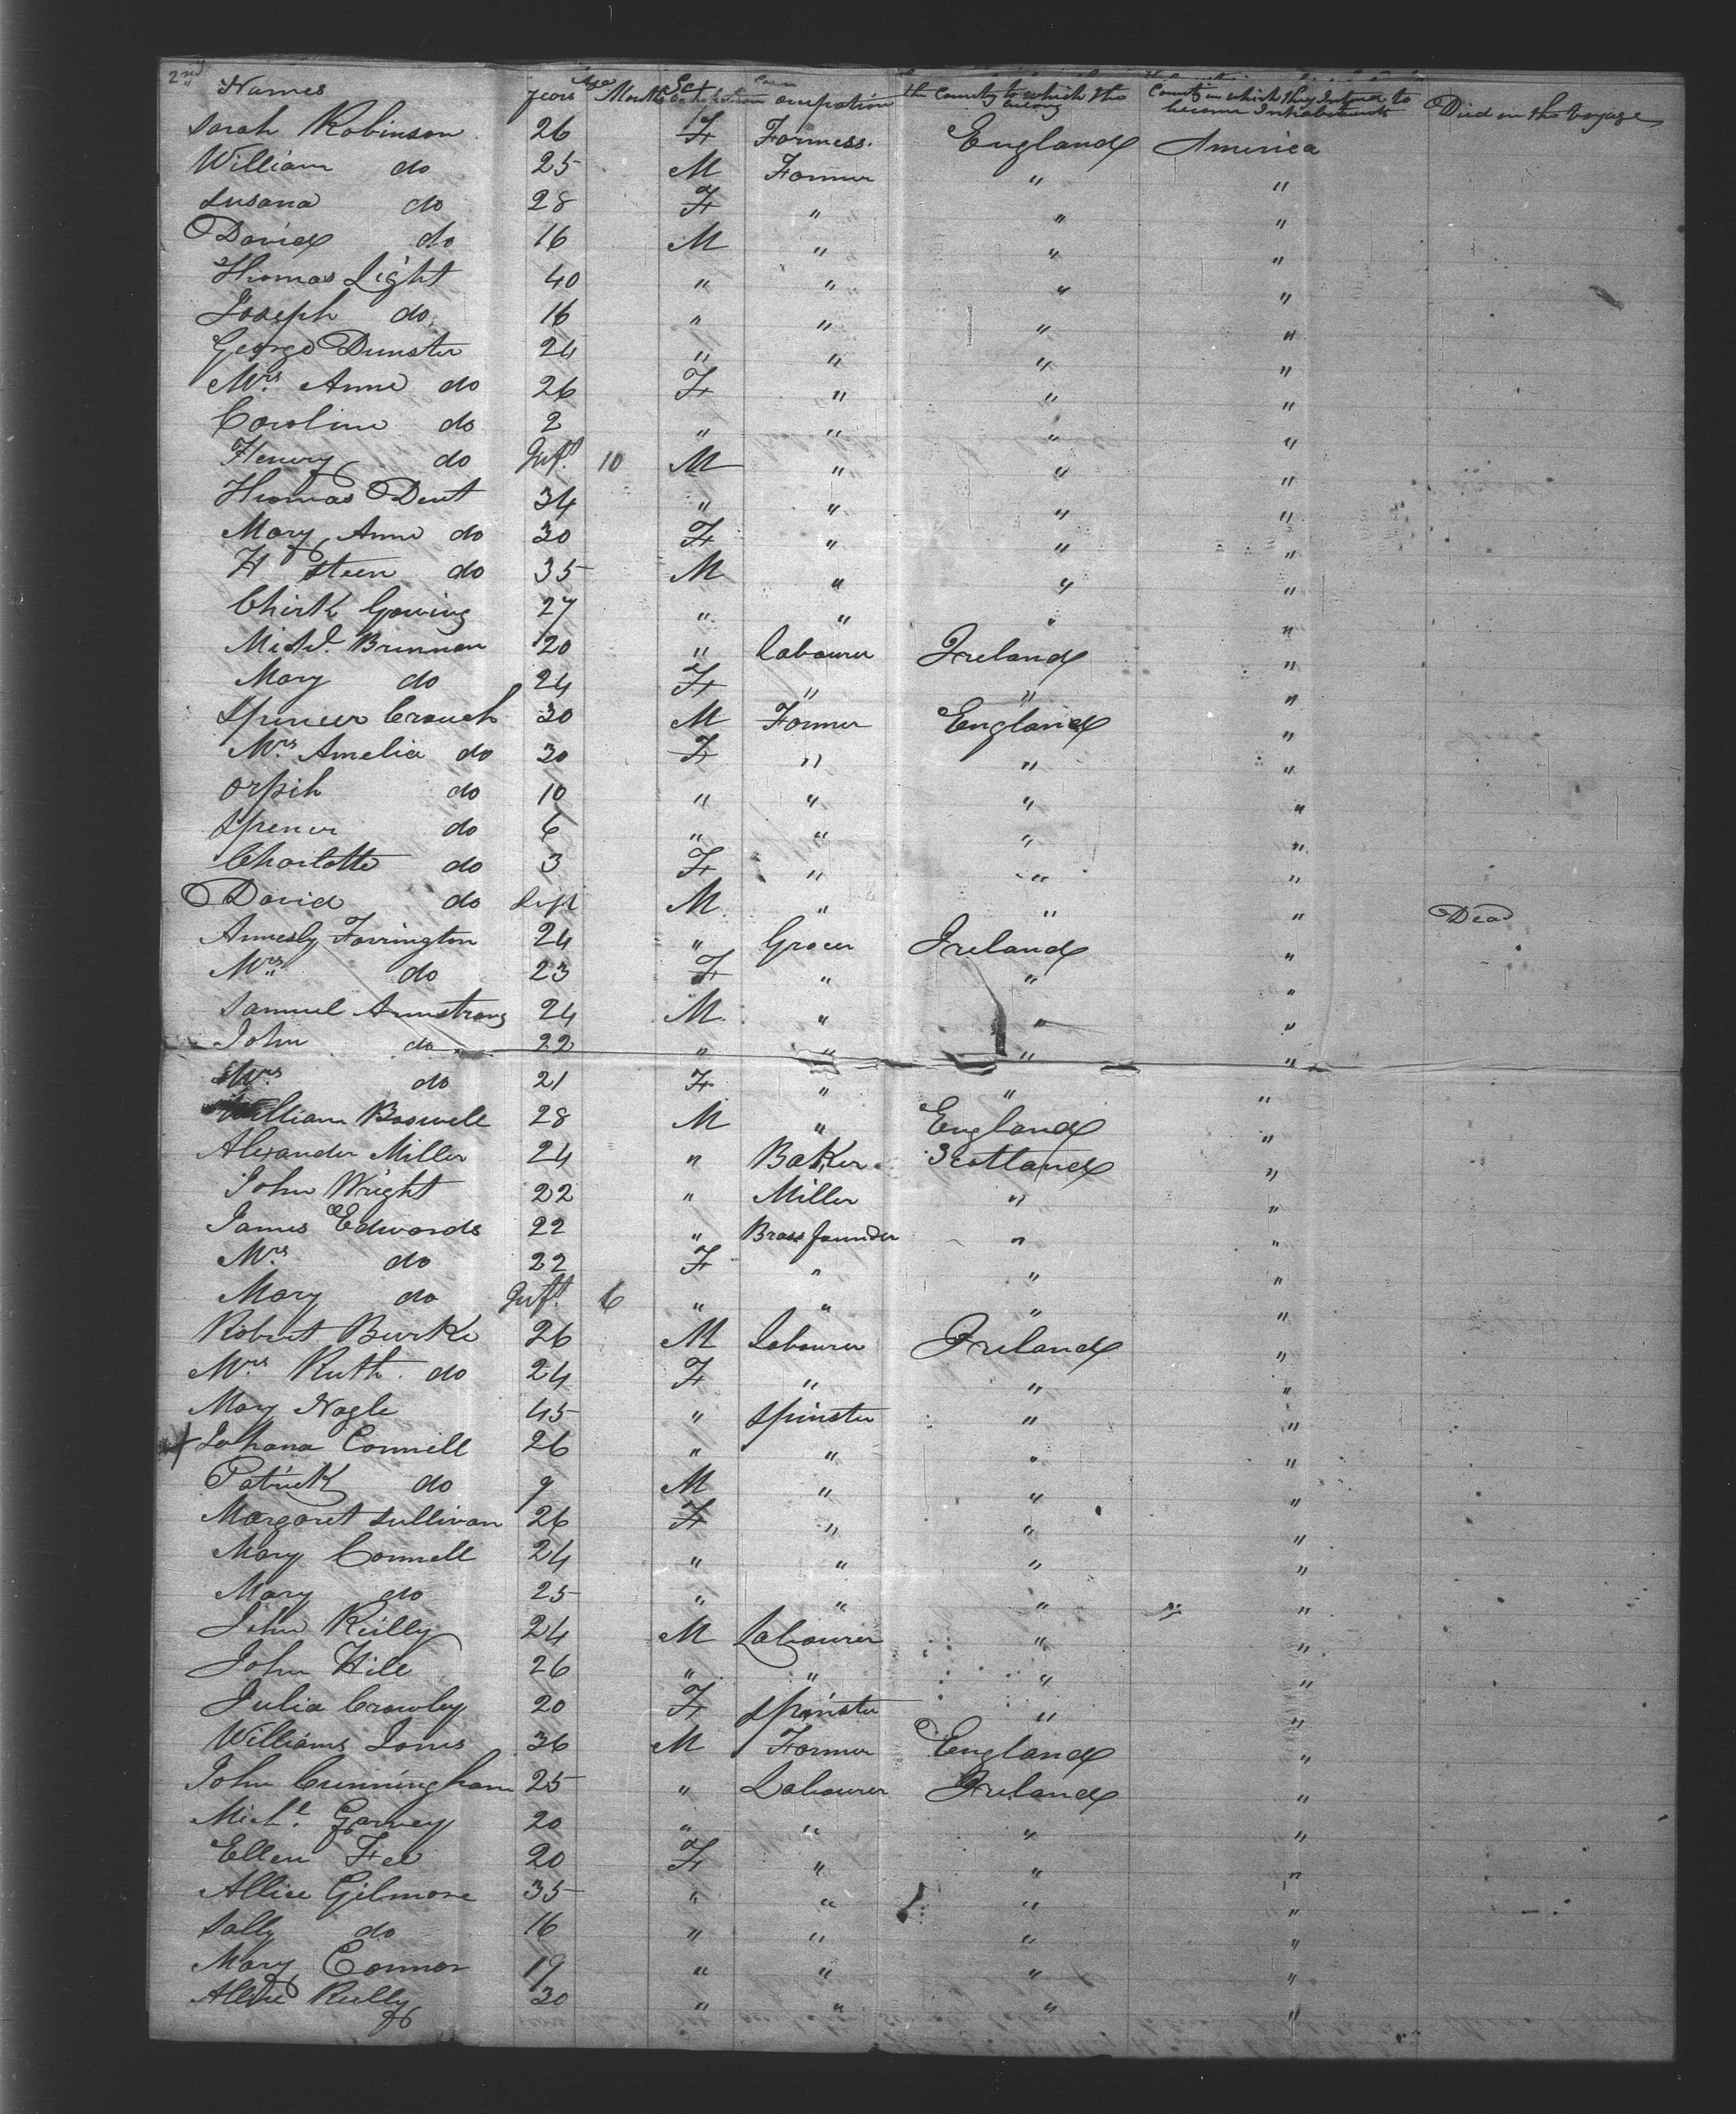 2nd Names years Age Months Sex occupation the County to which the belong County in which they Intend to become Inhabitants Died on the Voyage
Sarah Robinson 26 F Farmess. England America
William do 25 M Farmer " "
Susana do 28 F " " "
David do 16 M " " "
Thomas Light 40 " " " "
Joseph do 16 " " " "
George Dunster 24 " " " "
Mrs Anne do 26 F " " "
Caroline do 2 " " " "
Henry do Inft 10 M " " "
Thomas Dent 34 " " " "
Mary Anne do 30 F " " "
H Steen do 35 M " " "
Chirk Gowing 27 " " " "
Michl. Brennan 20 " Labourer Ireland "
Mary do 24 F " " "
Spencer Crouch 30 M Farmer England "
Mrs Amelia do 30 F " " "
Orpih do 10 " " " "
Spencer do 6 " " " "
Charlotte do 3 F " " "
David do M " " " Dead
Annesly Farrington 24 " Grocer Ireland "
Mrs do 23 F " " "
Samuel Armstrong 24 M " " "
John do 22 " " " "
Mrs do 21 F " " "
William Boswell 28 M " England "
Alexander Miller 24 " Baker Scotland "
John Wright 22 " Miller " "
James Edwards 22 " Brass founder " "
Mrs do 22 F " " "
Mary do Inft. 6 " " " "
Robert Burke 26 M Labourer Ireland "
Mrs Ruth do 24 F " " "
Mary Nagle 45 " Spinster " "
+ Johana Connell 26 " " " "
Patrick do 9 M " " "
Margaret Sullivan 26 F " " "
Mary Connell 24 " " " "
Mary do 25 " " " "
John Reilly 24 M Labourer " "
John Hill 26 " " " "
Julia Crowley 20 F Spinster " "
Williams Jones 36 M Farmer England "
John Cunningham 25 " Labourer Ireland "
Michl. Garvey 20 " " " "
Ellen Fee 20 F " " "
Allice Gilmore 35 " " " "
Sally do 16 " " " "
Mary Connor 19 " " " "
Allice Reilly 30 " " " "